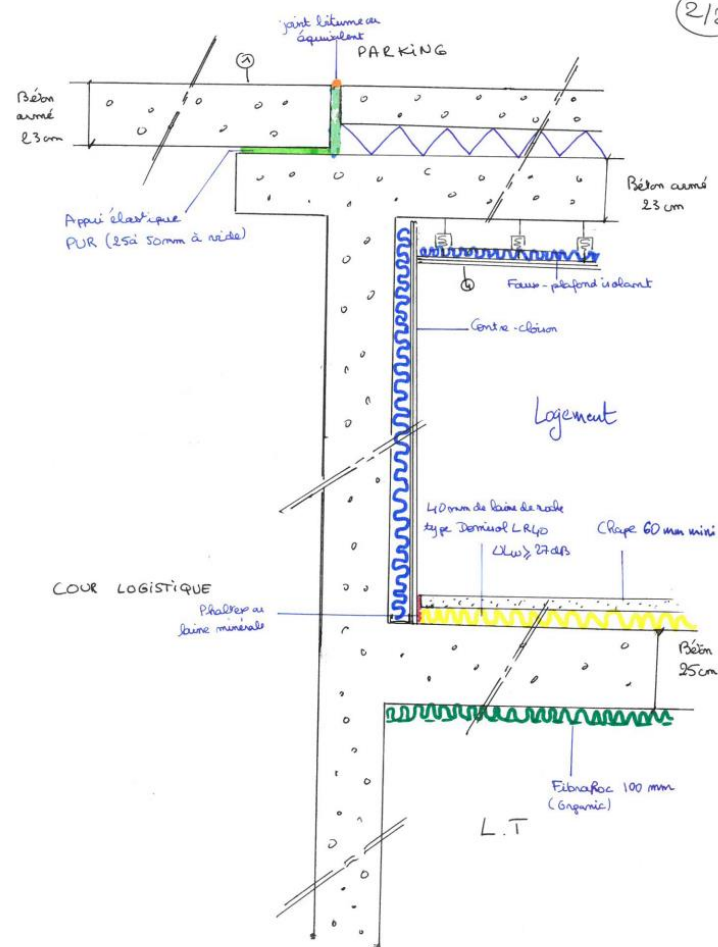 2/
joint bitume ou
équivalent
PARKING
1
Béton
armé
23 cm
Béton armé
23 cm
Appui élastique
PUR (25 à 50mm à vide)
4
Faux-plafond isolant
Contre-cloison
Logement
40mm de laine de roche
type Domisol LR40
ΔLw ≥ 27dB
Chape 60 mm mini
COUR LOGISTIQUE
Phaltex ou
laine minérale
Béton
25cm
FibraRoc 100 mm
(Organic)
L.T